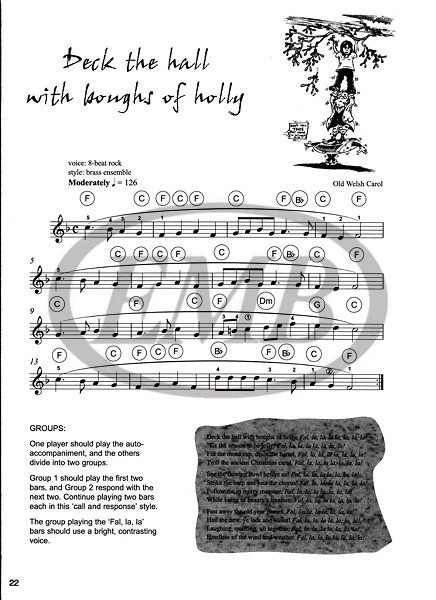 Deck the hall
with boughs of holly
voice: 8-beat rock
style: brass ensemble
Moderately ♩ = 126
Old Welsh Carol
F C F C F C F B♭ C F
F C F C F C F B♭ C F
C F C F Dm G C
F C F C F B♭ F C F
EMB
GROUPS:
One player should play the auto-
accompaniment, and the others
divide into two groups.
Group 1 should play the first two
bars, and Group 2 respond with the
next two. Continue playing two bars
each in this 'call and response' style.
The group playing the 'Fal, la, la'
bars should use a bright, contrasting
voice.
Deck the hall with boughs of holly, Fal, la, la, la, la, la, la, la!
'Tis the season to be jolly! Fal, la, la, la, la, la, la, la!
Fill the mead cup, drain the barrel, Fal, la, la, la, la, la, la, la!
Troll the ancient Christmas carol, Fal, la, la, la, la, la, la, la!
See the flowing bowl before us! Fal, la, la, la, la, la, la, la!
Strike the harp and join the chorus! Fal, la, la, la, la, la, la, la!
Follow me in merry measure, Fal, la, la, la, la, la, la, la!
While I sing of beauty's treasure, Fal, la, la, la, la, la, la, la!
Fast away the old year passes, Fal, la, la, la, la, la, la, la!
Hail the new, ye lads and lasses! Fal, la, la, la, la, la, la, la!
Laughing, quaffing, all together, Fal, la, la, la, la, la, la, la!
Heedless of the wind and weather, Fal, la, la, la, la, la, la, la!
22